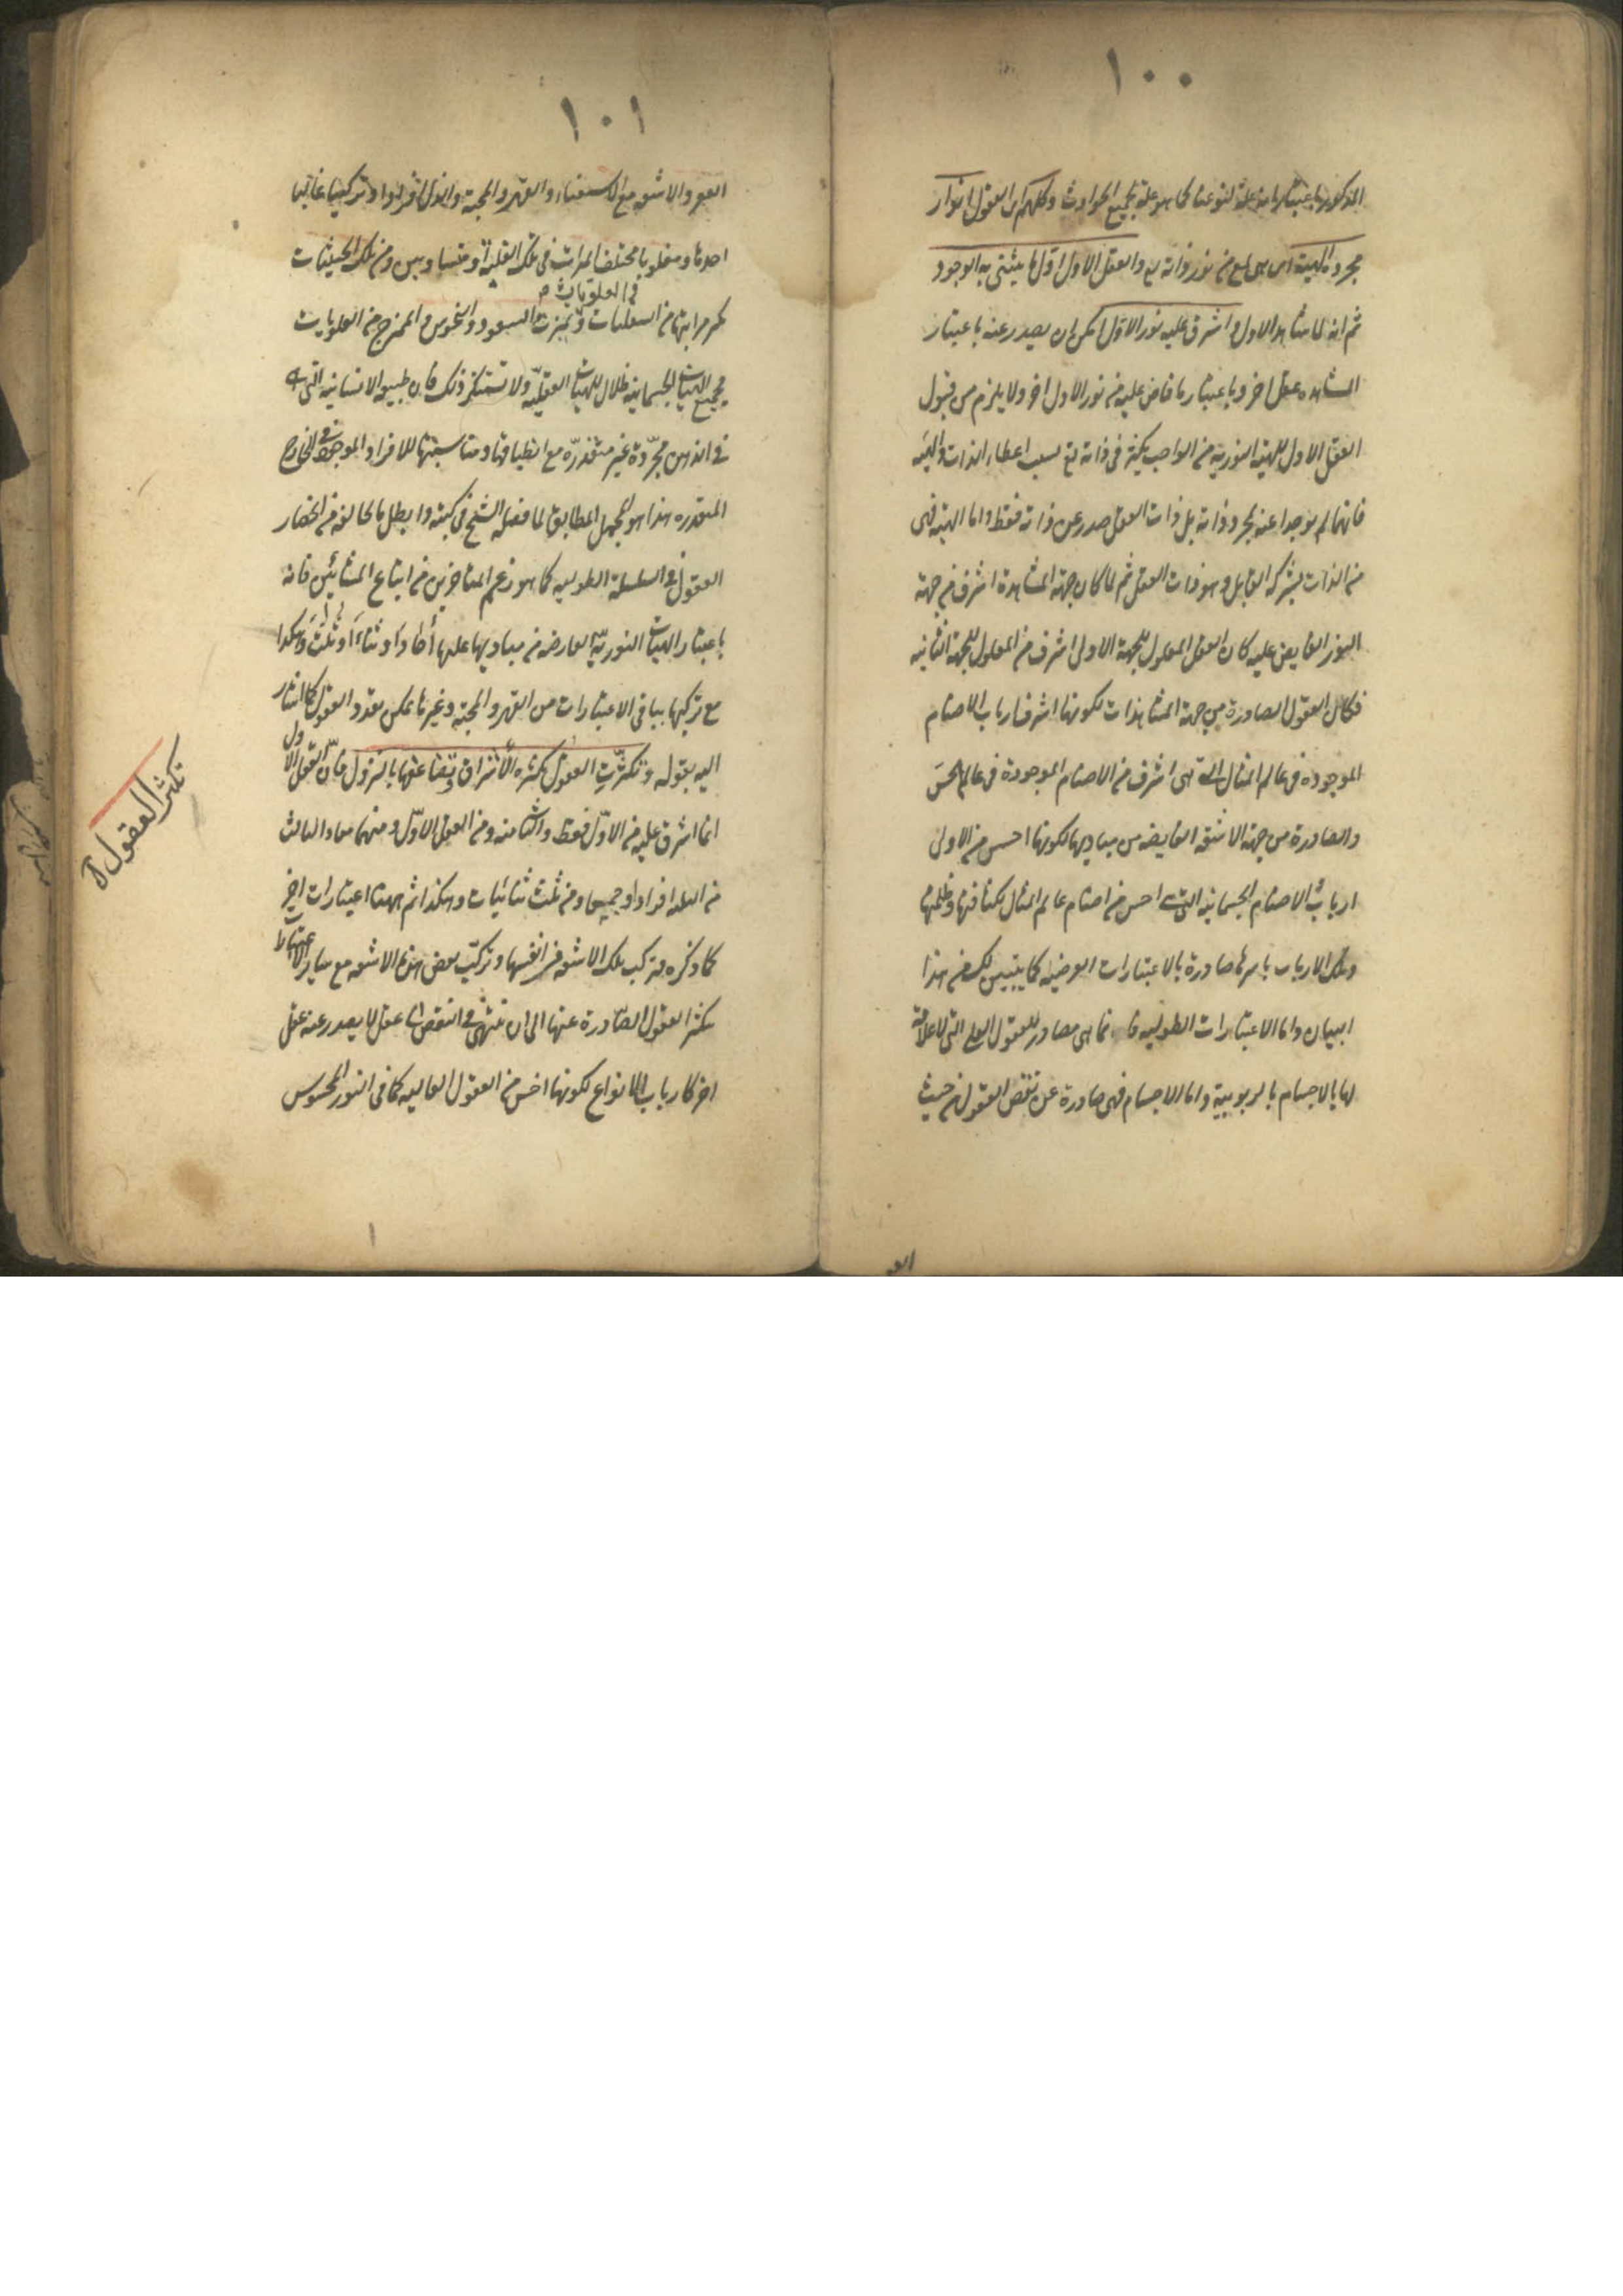 ١٠٠
المذكور باعتبارانه علة لنوعنا كما هو علة لجميع الحوادث وكلهم اى العقول انوار
مجردة الهية اى هى لمع من نور ذاته تع والعقل الاول اول ما ينتشى به الوجود
ثم انه لما شاهد الاول واشرق عليه نور الاول امكن ان يصدر عنه باعتبار
المشاهده عقل اخر وباعتبار ما فاض عليه من نور الاول اخر ولا يلزم من قبول
العقل الاول للهيئة النورية من الواجب تكثر فى ذاته تع بسبب اعطاء الذات والهيئه
فانهما لم يوجدا عنه بمجرد ذاته بل ذات العقل صدر عن ذاته فقط واما الهيئه فهى
من الذات بشركه القابل وهو ذات العقل ثم لما كان جهة المشاهدة اشرف من جهة
النور الفايض عليه كان العقل المعلول للجهة الاولى اشرف من المعلول للجهة الثانيه
فكان العقول الصادرة من جهة المشاهدات لكونها اشرف ارباب الاصنام
الموجوده فى عالم المثال التى هى اشرف من الاصنام الموجودة فى عالم الحس
والصادرة من جهة الاشعه الفايضه من مباديها لكونها اخس من الاولى
ارباب الاصنام الجسمانيه التى اخس من اصنام عالم المثال لكثافتها وظلمتها
وتلك الارباب باسرها صادرة بالاعتبارات العرضيه كما يتبين لك من هذا
البيان واما الاعتبارات الطوليه فانما هى مصادر للعقول العلى التى لا علاقة
لها بالاجسام بالربوبية واما الاجسام فهى صادرة عن نقص العقول من حيث
١٠١
الفقر والاشعه مع الاستغناء والقهر والمحبة والذل افرادا وتركيبا غالبا
احدها ومغلوبا مختلف المراتب فى تلك الغلبة او متساويين ومن تلك الحيثيات
فى العلويات
مراتبها من السفليات وتميزت السعود والنحوس والممتزج من العلويات
فجميع الهيئات الجسمانيه ظلال للهيئات العقليه ولا تستنكر ذلك فان طبيعه الانسانيه التى
فى الذهن مجردة غير متقدره مع انطباقها ومناسبتها للافراد الموجوده فى الخارج
المتقدره هذا هو المجمل المطابق لما فصله الشيخ فى كتبه وابطل ما لحالفه من انحصار
العقول فى السلسلة الطوليه كما هو زعم المتاخرين من اتباع المشائين فانه
باعتبار الهيئات النوريه العارضه من مباديها عليها احادا وثناء او ثلاث وهكذا
مع تركيبها بباقى الاعتبارات من القهر والمحبة وغيرها يمكن تعدد العقول كما اشار
اليه بقوله وتكثرت العقول بكثرة الاشراق وتضاعفها بالنزول فان العقل الاول
انما اشرق عليه من الاول فقط والثانى منه ومن العقل الاول ومنهما معا والثالث
من الثلثه افرادا وجميعا ومن ثلث ثنائيات وهكذا ثم ههنا اعتبارات اخر
كما ذكره من تركب تلك الاشعه فى انفسها وتركب بعض هذه الاشعه مع ساير الاعتبارات
تكثر العقول الصادرة عنها الى ان تنتهى فى النقص الى عقل لا يصدر عنه عقل
اخر كارباب الانواع لكونها اخس من العقول العاليه كما فى النور المحسوس
تكثر العقول